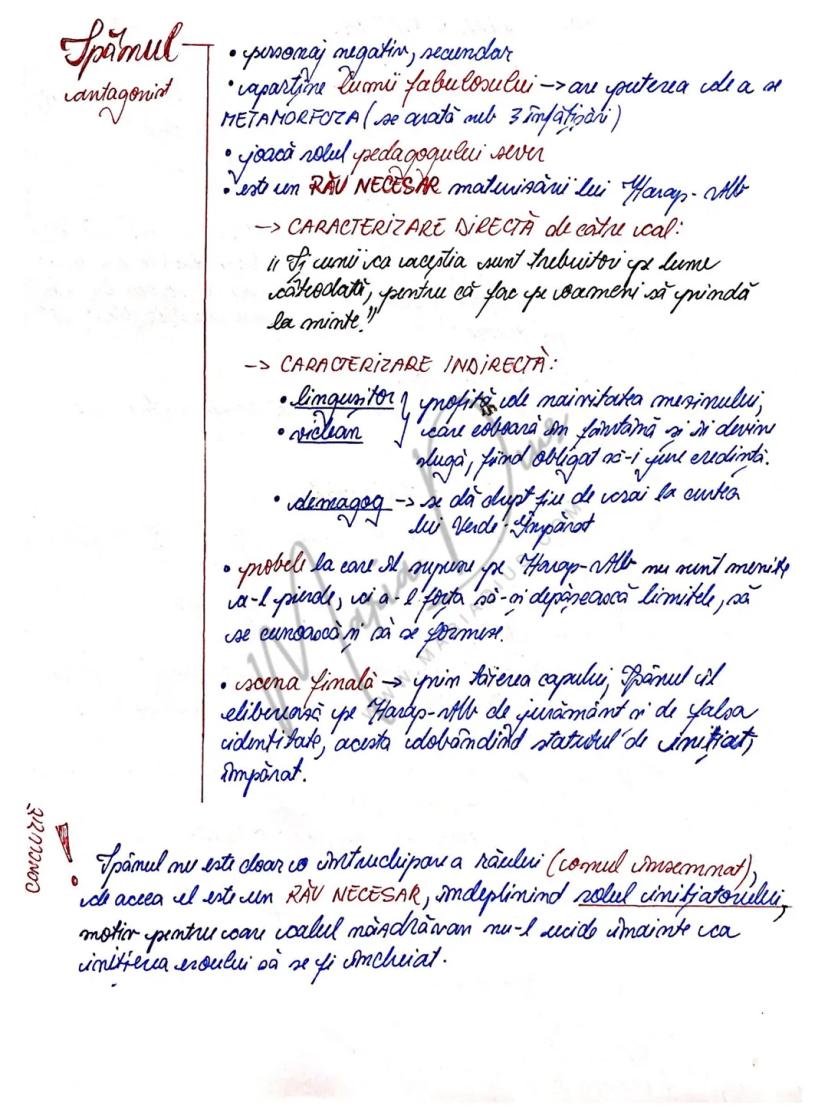 Spânul
antagonist
• personaj negativ, secundar
• aparține lumii fabulosului → are puterea de a se
METAMORFOZA (se arată sub 3 înfățișări)
• joacă rolul pedagogului sever
• este un RĂU NECESAR maturizării lui Harap-Alb
→ CARACTERIZARE DIRECTĂ de către cal:
„Și unii ca aceștia sunt trebuitori pe lume
câteodată, pentru că fac pe oameni să prindă
la minte."
→ CARACTERIZARE INDIRECTĂ:
• lingușitor } profită de naivitatea mezinului,
• viclean } care coboară în fântână și îi devine
slugă, fiind obligat să-i jure credință.
• demagog → se dă drept fiu de crai la curtea
lui Verde-Împărat
• probele la care îl supune pe Harap-Alb nu sunt menite
a-l pierde, ci a-l forța să-și depășească limitele, să
se cunoască și să se formeze.
• scena finală → prin tăierea capului, Spânul îl
eliberează pe Harap-Alb de jurământ și de falsa
identitate, acesta dobândind statutul de inițiat,
împărat.
CONCLUZIE
! Spânul nu este doar o întruchipare a răului (omul însemnat),
de aceea el este un RĂU NECESAR, îndeplinind rolul inițiatorului,
motiv pentru care calul năzdrăvan nu-l ucide înainte ca
inițierea eroului să se fi încheiat.
Maria Dius
WWW.MARIADIUS.COM